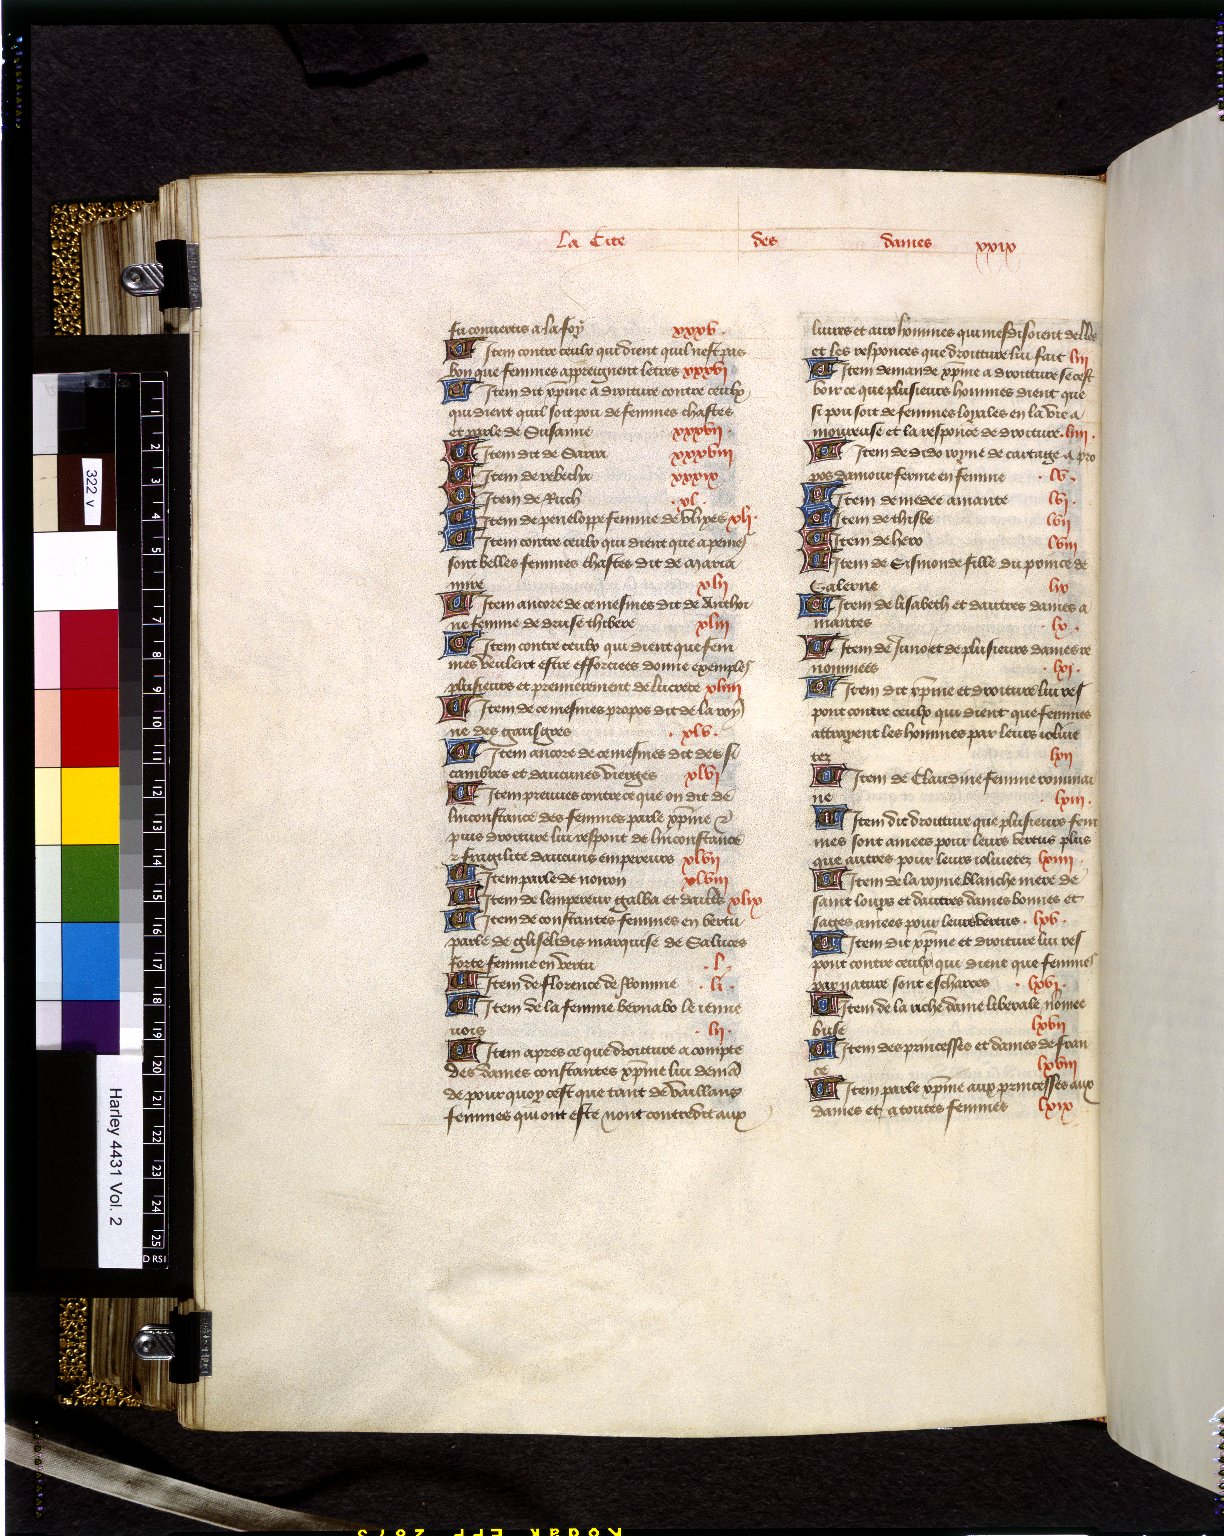 La Cite des dames xxix
fu convertis a la foy xxxv.
Item contre ceulx qui dient quil nest pas
bon que femmes appreignent letres xxxvi
Item dit xpine a droiture contre ceulx
qui dient quil soit pou de femmes chastes
et parle de Susanne xxxvii.
Item dit de Sarra xxxviii
Item de rebecha xxxix.
Item de Ruth .xl.
Item de penelope femme de Ulixes xli.
Item contre ceulx qui dient que a peine
sont belles femmes chastes dit de Maria
mire xlii
Item ancore de ce mesmes dit de Anthoi
ne femme de druse thibere xliii
Item contre ceulx qui dient que fem
mes veulent estre efforciees donne exemples
plusieurs et premierement de lucrece xliiii
Item de ce mesmes propos dit de la roy
ne des gausgres .xlv.
Item ancore de ce mesmes dit des si
cambres et daucunes vierges xlvi
Item preuves contre ce que on dit de
linconstance des femmes parle xpine et
puis droiture lui respont de linconstance
et fragilite daucuns empereurs xlvii
Item parle de noiron xlviii
Item de lempereur galba et daultres xlix
Item de constantes femmes en vertu
parle de gliselidis marquise de Saluces
forte femme en vertu .l.
Item de florence de Romme .li.
Item de la femme bernabo le ienne
vois .lii.
Item apres ce que droiture a compte
des dames constantes xpine lui demande
de pour quoy cest que tant de vaillans
femmes qui ont este nont contredit aux
livres et aux hommes qui mesdisoient delles
et les responces que droitture lui fait liii
Item demande xpine a droitture se cest
voir ce que plusieurs hommes dient que
si pou soit de femmes loyales en la vie a
moureuse et la responce de droiture .liiii.
Item de dido royne de cartage a pro
pos damour ferme en femme .lv.
Item de medee amante lvi.
Item de thisbe lvii
Item de hero lviii
Item de Sismonde fille du prince de
Salerne lix
Item de lisabeth et dautres dames a
mantes .lx.
Item de Juno et de plusieurs dames re
nommees .lxi.
Item dit xpine et droiture lui res
pont contre ceulx qui dient que femmes
attrayent les hommes par leurs iolivie
tez lxii
Item de Claudine femme rommai
ne .lxiii.
Item dit droitture que plusieurs fem
mes sont amees pour leurs vertus plus
que autres pour leurs iolivetez lxiiii.
Item de la royne blanche mere de
saint louys et dautres dames bonnes et
sages amees pour leurs vertus .lxv.
Item dit xpine et droiture lui res
pont contre ceulx qui dient que femmes
par nature sont escharces .lxvi.
Item de la riche dame liberale nomee
buse lxvii
Item des princesses et dames de fran
ce lxviii
Item parle xpine aux princesses aux
dames et a toutes femmes lxix
322 v
Harley 4431 Vol. 2
1 2 3 4 5 6 7 8 9 10 11 12 13 14 15 16 17 18 19 20 21 22 23 24 25